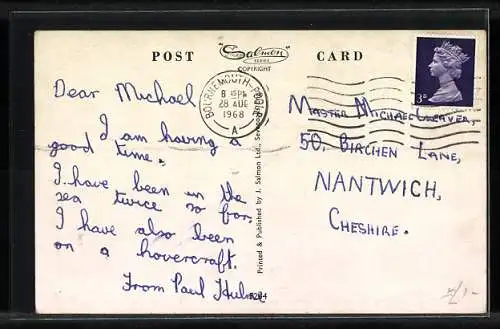 POST "Salmon" CARD
SERIES
COPYRIGHT
BOURNEMOUTH-POOLE
8 15PM
28 AUG
1968
A
3D
Dear Michael
I am having a
good time.
I have been in the
sea twice so far.
I have also been
on a hovercraft.
From Paul
Printed & Published by J. Salmon Ltd., Sevenoaks
MASTER MICHAEL
50, BIRCHEN LANE,
NANTWICH,
CHESHIRE.